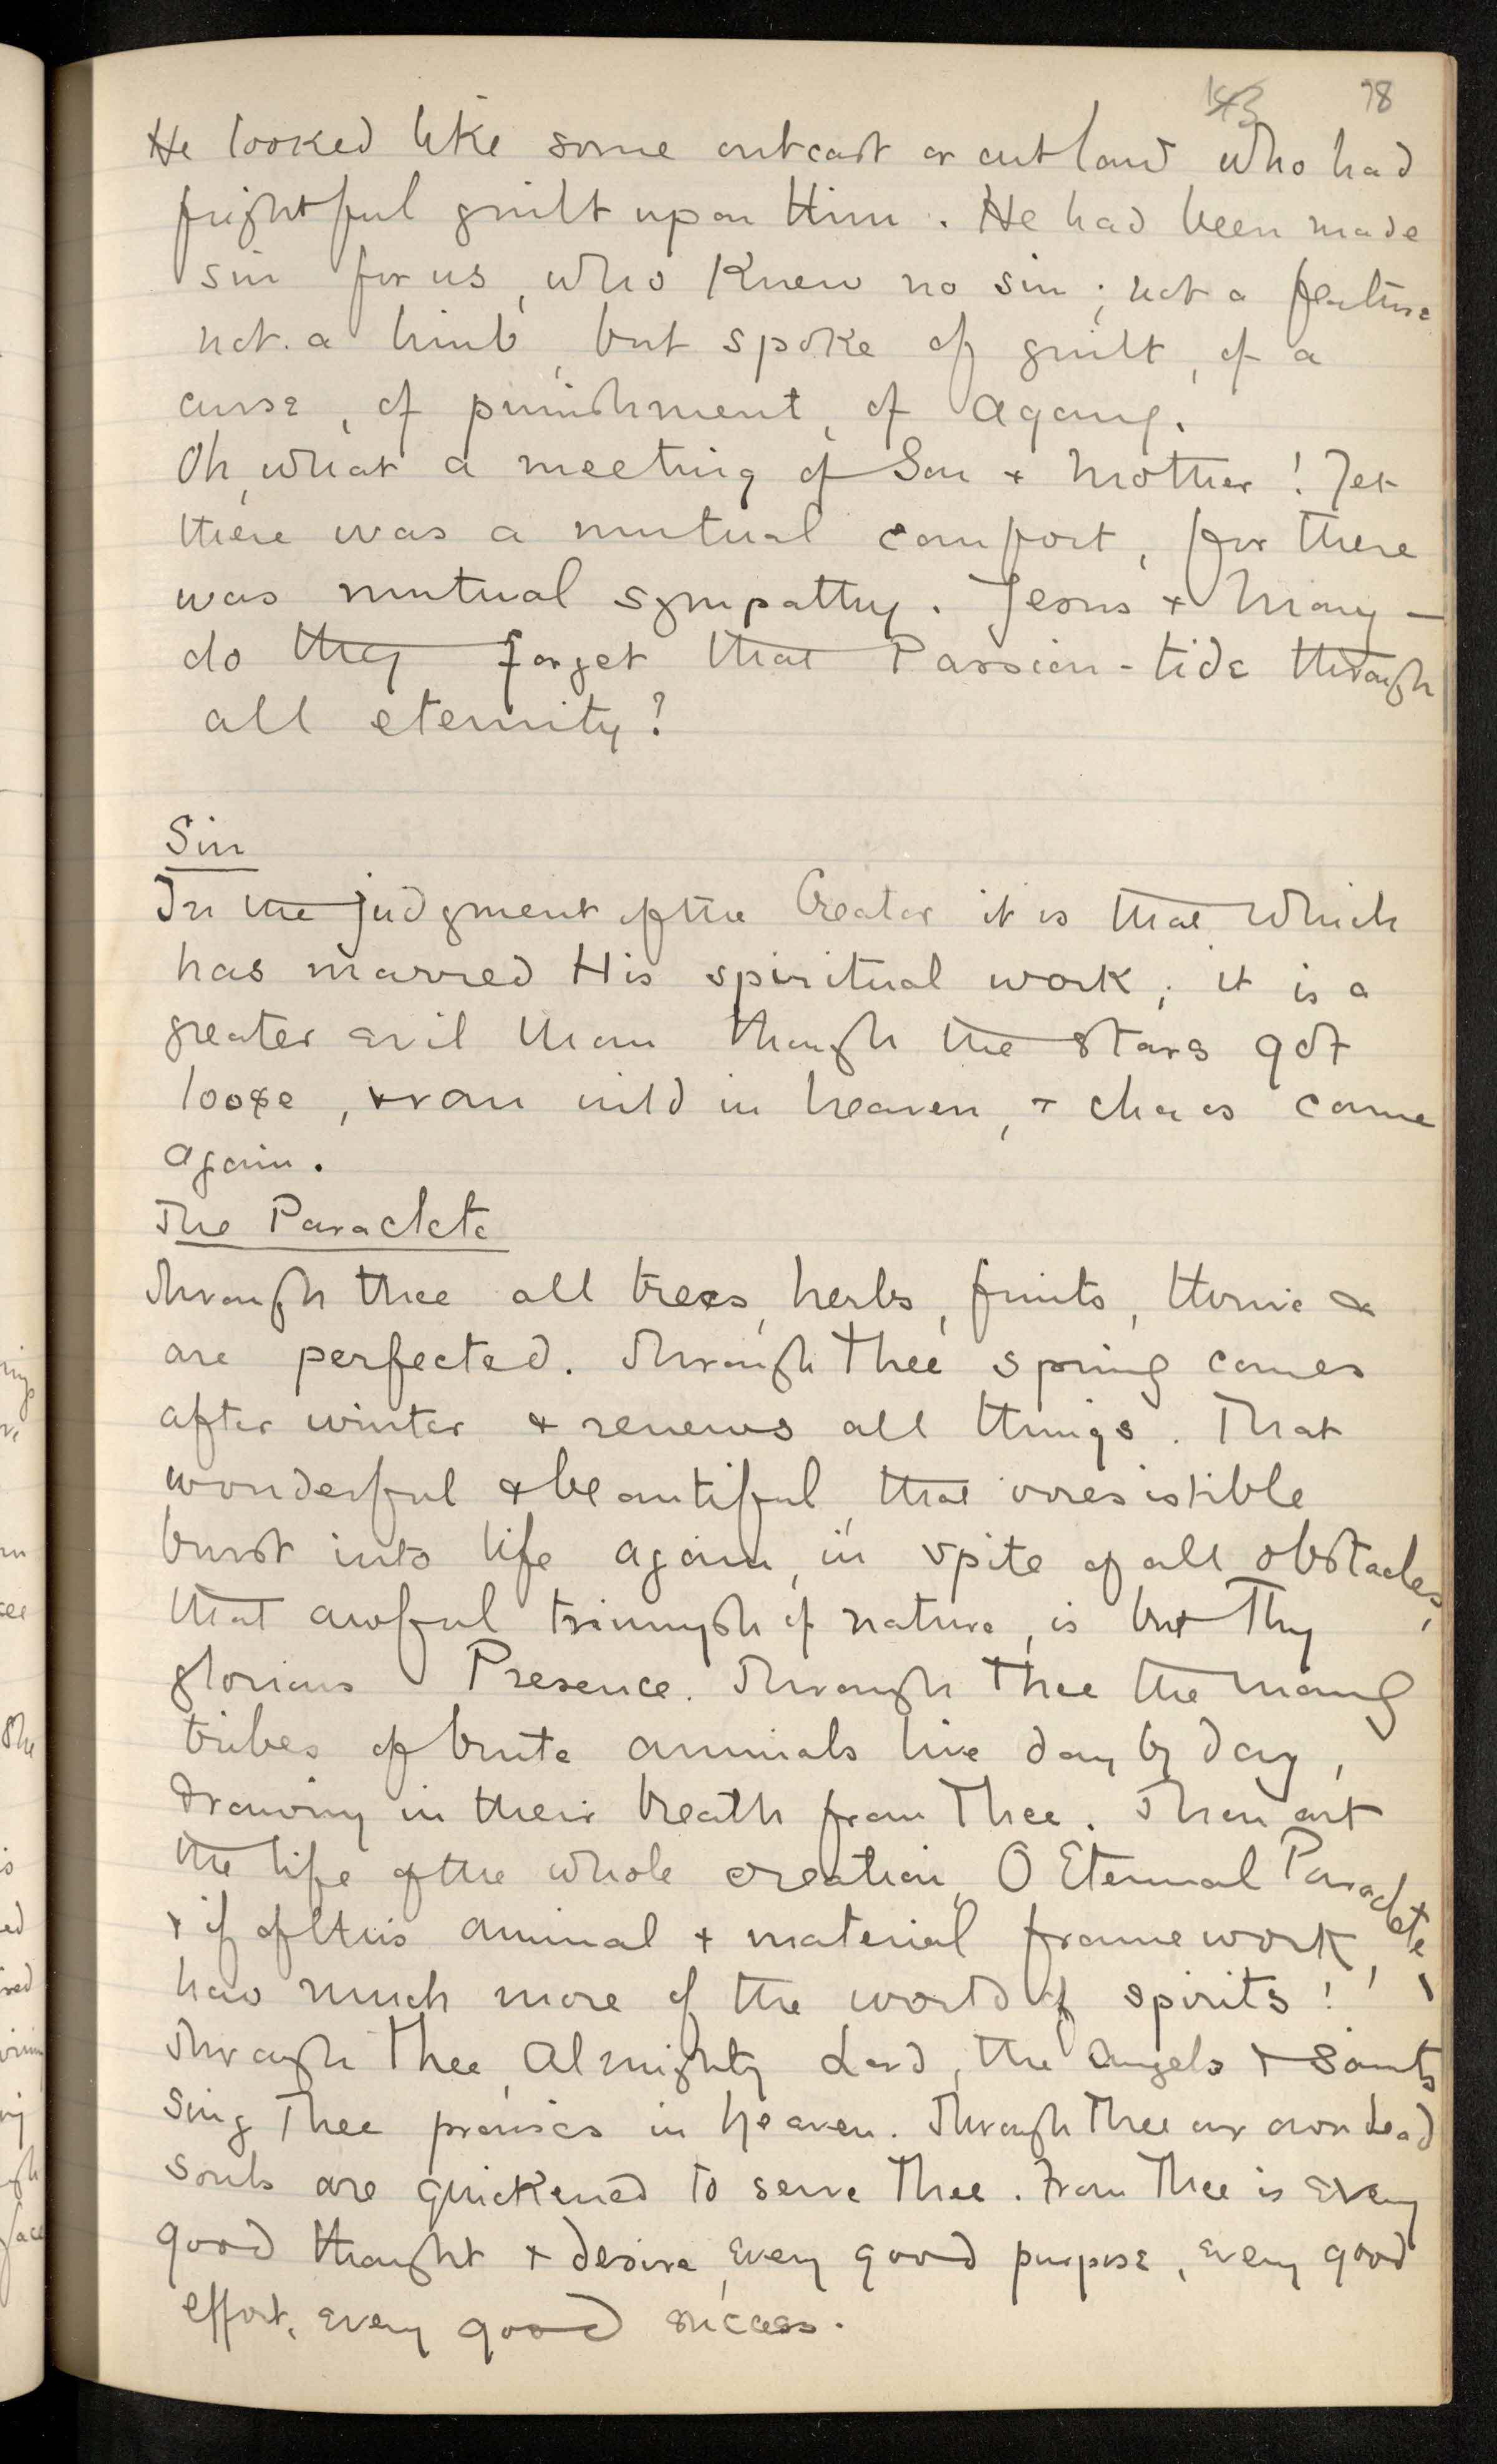 143 78
He looked like some outcast or outlaw who had
frightful guilt upon Him. He had been made
sin for us, who knew no sin; not a feature
not a limb, but spoke of guilt, of a
curse, of punishment, of agony.
Oh, what a meeting of Son + Mother! Yet
there was a mutual comfort, for there
was mutual sympathy. Jesus + Mary –
do they forget that Passion-tide through
all eternity?
Sin
In the judgment of the Creator it is that which
has marred His spiritual work; it is a
greater evil than though the stars got
loose, + ran wild in heaven, + chaos came
again.
The Paraclete
Through thee all trees, herbs, fruits, thrive &
are perfected. Through Thee spring comes
after winter + renews all things. That
wonderful + beautiful, that irresistible
burst into life again, in spite of all obstacles,
that awful triumph of nature, is but Thy
glorious Presence. Through Thee the many
tribes of brute animals live day by day,
drawing in their breath from Thee. Thou art
the life of the whole creation, O Eternal Paraclete –
+ if of this animal + material framework,
how much more of the world of spirits!
Through Thee, Almighty Lord, the angels + saints
sing Thee praises in heaven. Through Thee our own dead
souls are quickened to serve Thee. From Thee is every
good thought + desire, every good purpose, every good
effort, every good success.